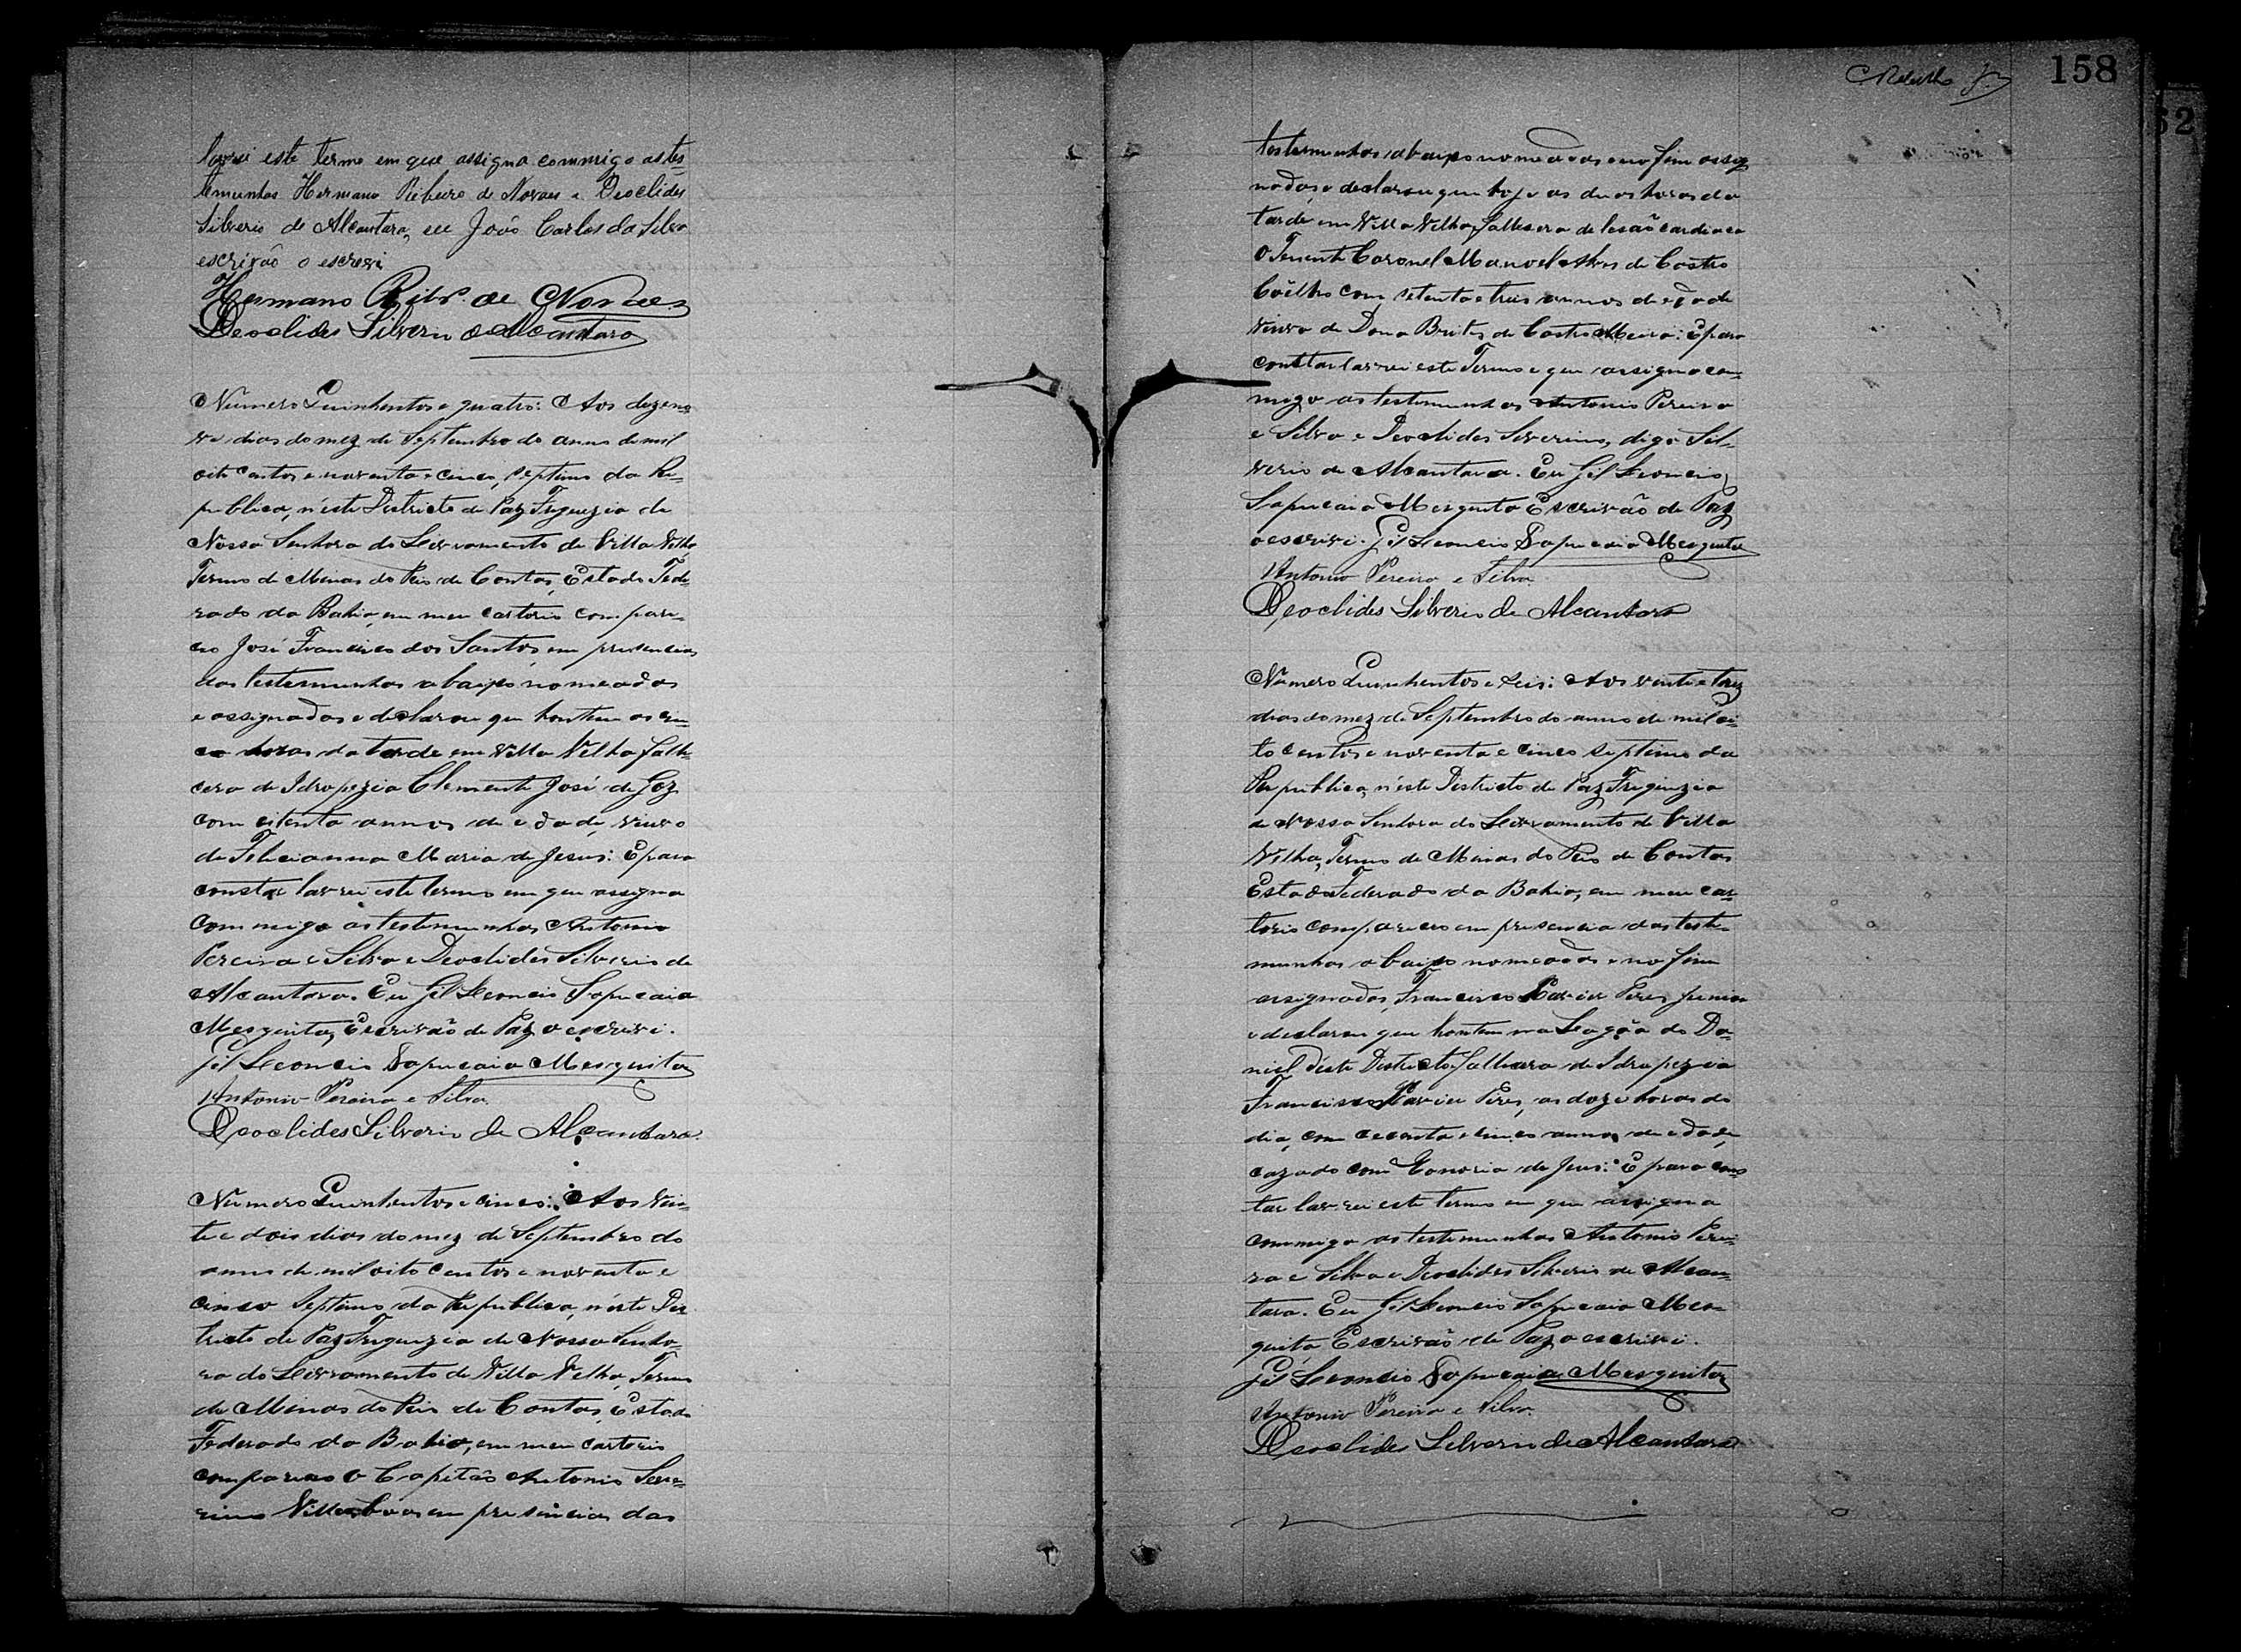 lavrei este termo em que assigna commigo as tes
temunhas Hermano Ribeiro de Novaes e Deoclides
Silverio de Alcantara, eu João Carlos da Silva
escrivão o escrevi
Hermano Ribr.º de Novaes
Deoclides Silverio de Alcantara
Numero Quinhentos e quatro: Aos dezeno
ve dias do mez de Septembro do anno de mil
oito centos e noventa e cinco, septimo da Re-
publica, n'éste Districto de Paz Freguezia de
Nossa Senhora do Livramento de Villa Velha
Termo de Minas do Rio de Contas, Estado Fede-
rado da Bahia, em meu cartorio compare-
ceo José Francisco dos Santos, em presencia
das testemunhas abaixo nomeadas
e assignadas e declarou que hontem as cin-
co horas da tarde em Villa Velha falle-
cera de Idropezia Clemente José de
com oitenta annos de edade, viuvo
de Felicianna Maria de Jesus: E para
constar lavrei este termo em que assigna
commigo as testemunhas Antonio
Pereira e Silva e Deoclides Silverio de
Alcantara. Eu Gil Leoncio Sapucaia
Mesquita, Escrivão de Paz o escrevi.
Gil Leoncio Sapucaia Mesquita
Antonio Pereira e Silva
Deoclides Silverio de Alcantara.
Numero Quinhentos e cinco: Aos vin-
te e dois dias do mez de Septembro do
anno de mil oito centos e noventa e
cinco Septimo da Republica, n'éste Dis
tricto de Paz Freguezia de Nossa Senho-
ra do Livramento de Villa Velha, Termo
de Minas do Rio de Contas, Estado
Federado da Bahia, em meu cartorio
compareceo o Capitão Antonio Seve-
rino Villasboas em presencia das
158
testemunhas abaixo nomeadas e no fim assig
nadas, e declarou que hoje as duas horas da
tarde em Villa Velha, fallecera de lesão cardiaca
O Tenente Coronel Manoel Alves de Castro
Coêlho com setenta e tres annos de edade
viuvo de Dona Brites de Castro Meira: E para
constar lavrei este Termo e que assigna co-
migo as testemunhas Antonio Pereira
e Silva e Deoclides Severino, digo Sil-
verio de Alcantara. Eu Gil Leoncio
Sapucaia Mesquita Escrivão de Paz
o escrevi. Gil Leoncio Sapucaia Mesquita
Antonio Pereira e Silva
Deoclides Silverio de Alcantara
Numero Quinhentos e seis: Aos vinte e trez
dias do mez de Septembro do anno de mil oi-
to centos e noventa e cinco septimo da
Republica, n'éste Districto de Paz Freguezia
de Nossa Senhora do Livramento de Villa
Velha, Termo de Minas do Rio de Contas
Estado Federado da Bahia, em meu car-
torio compareceo em presencia das teste-
munhas abaixo nomeadas e no fim
assignadas, Francisco Xavier Peres Junior
e declarou que hontem na Lagôa do Da-
niel d'éste Districto fallecera de Idropezia
Francisco Xavier Peres, as doze horas do
dia, com cecenta e cinco annos de edade,
cazado com Honoria de Jesus: E para cons
tar lavrei este termo em que assigna
commigo as testemunhas Antonio Perei-
ra e Silva e Deoclides Silverio de Alcan-
tara. Eu Gil Leoncio Sapucaia Mes-
quita Escrivão de Paz o escrevi.
Gil Leoncio Sapucaia Mesquita
Antonio Pereira e Silva
Deoclides Silverio de Alcantara